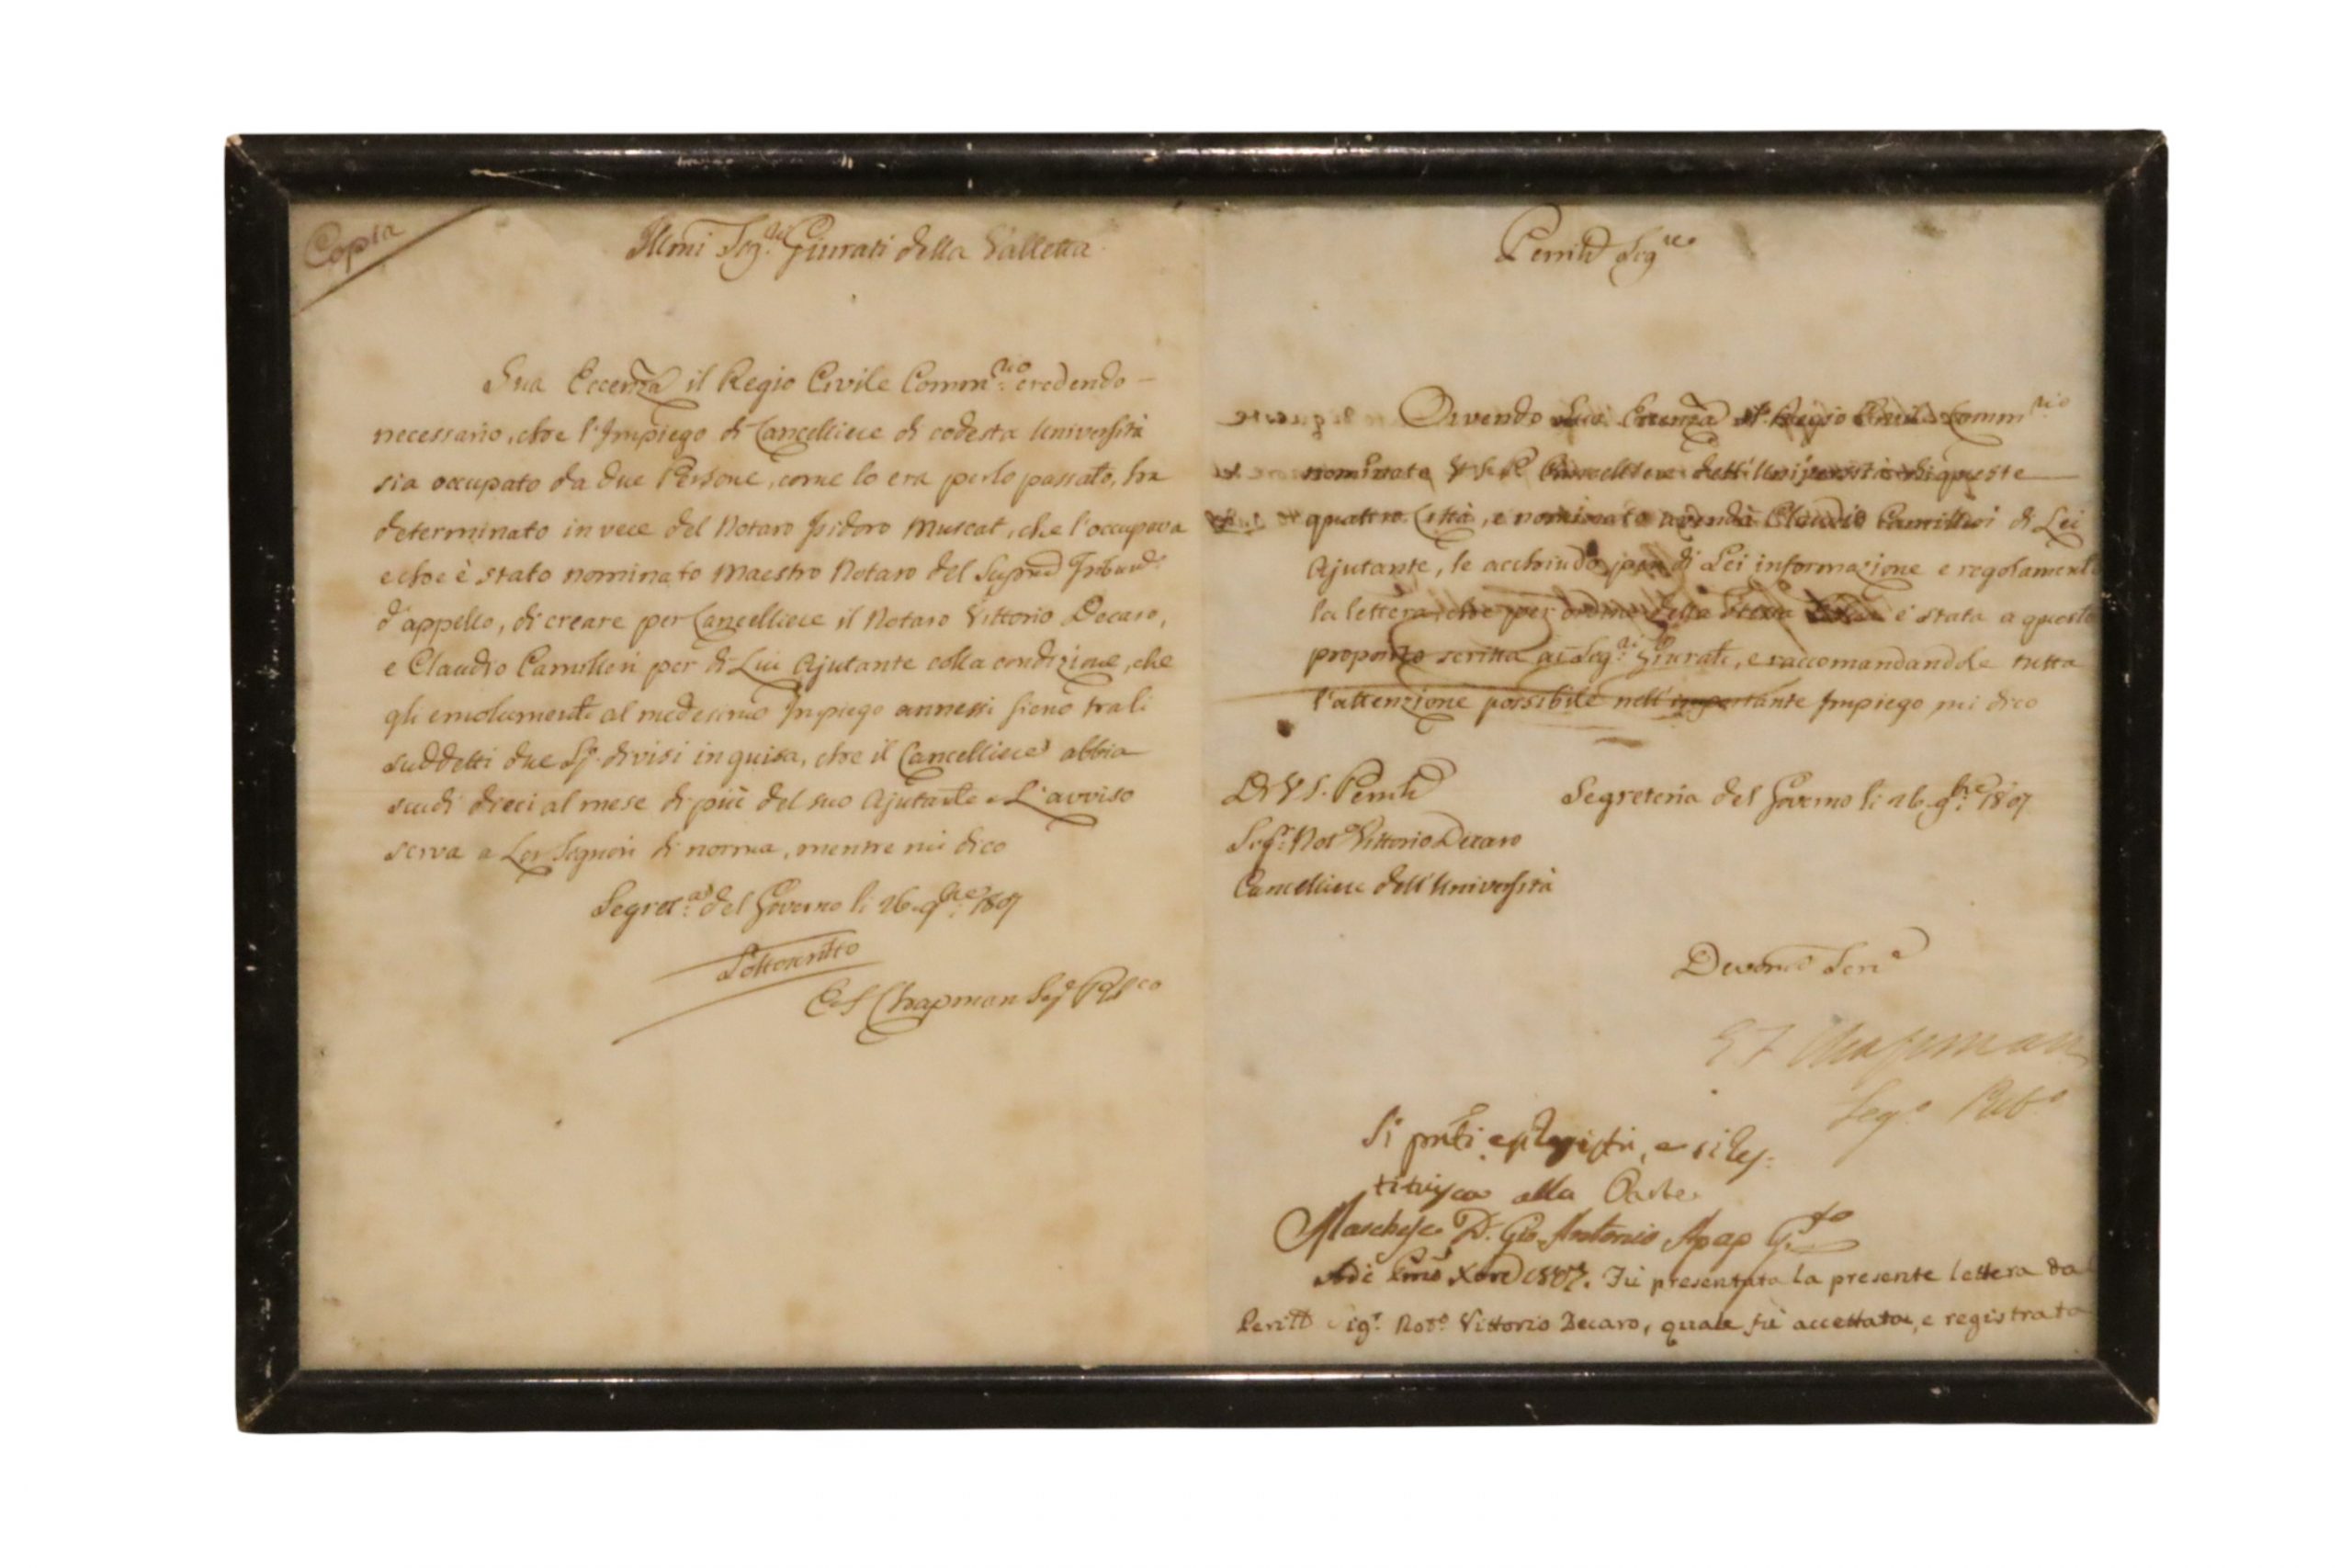 Copia
Illmi Sig.ri Giurati della Valletta
Sua Eccenza il Regio Civile Comm.rio credendo
necessario, che l'Impiego di Cancelliere di codesta Università
sia occupato da due Persone, come lo era perlo passato, ha
determinato in vece del Notaro Isidoro Muscat, che l'occupava
e che è stato nominato Maestro Notaro del Suprmo Tribunle
d'appello, di creare per Cancelliere il Notaro Vittorio Decaro,
e Claudio Camilleri per di Lui Ajutante colla condizione, che
gli emolumenti al medesimo Impiego annessi sieno trali
suddetti due Sig.ri divisi in guisa, che il Cancelliere abbia
scudi dieci al mese di più del suo Ajutante. L'avviso
serva a Lor Signori di norma, mentre mi dico
Segret.a del Governo li 26 9bre 1807
Sottoscritto
Chapman Seg.
Perill Sigre
Avendo Sua Eccenza il Regio Civile Comm.rio
nominato V.S. Cancelliere dell'Università di queste
quattro Città, e Claudio Camilleri di Lei
Ajutante, le acchiudo per di Lei informazione e regolament
la lettera, che per ordine della stessa è stata a questo
proposito scritta ai Sig.ri Giurati, e raccomandandole tutta
l'attenzione possibile nell'importante Impiego mi dico
Di V.S. Perill
Sig.r Not Vittorio Decaro
Cancelliere dell'Università
Segreteria del Governo li 26 9bre 1807
Devotmo Serve
Chapman
Seg.o Pub.o
Si registri, e si res-
tituisca alla Parte
Marchese D. Gio. Antonio Apap G.to
Adi Pmo Xbre 1807. Fù presentata la presente lettera da
Perill Sig.r Not.o Vittorio Decaro, quale fù accettata, e registrata